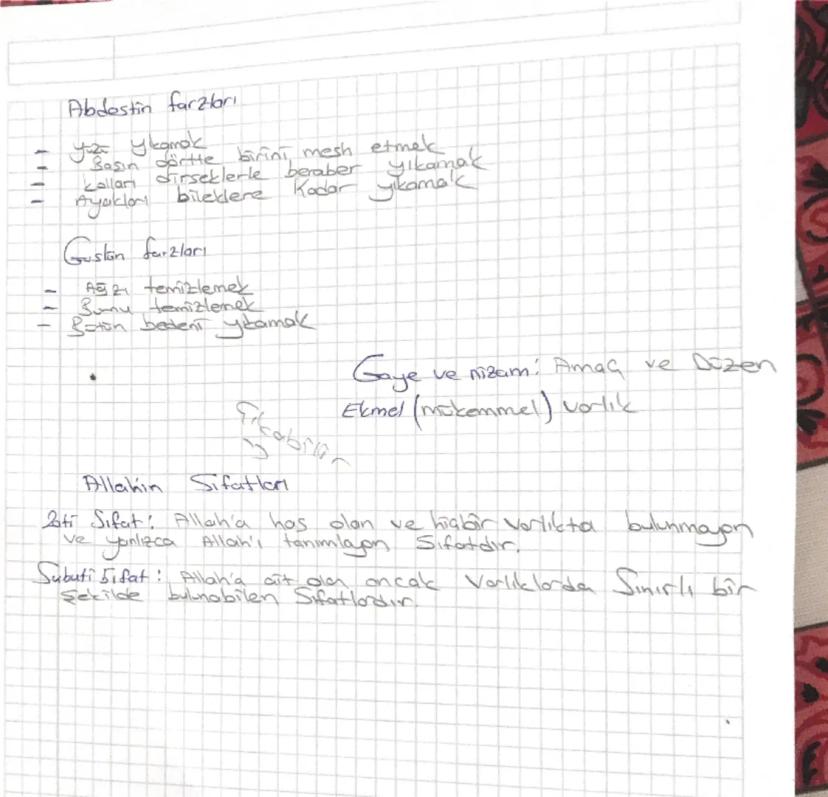 Abdestin farzları
- Yüzü yıkamak
- Başın dörtte birini mesh etmek
- Kolları dirseklerle beraber yıkamak
- Ayakları bileklere kadar yıkamak
Guslün farzları
- Ağzı temizlemek
- Burnu temizlemek
- Bütün bedeni yıkamak
Gaye ve nizam: Amaç ve Düzen
Ekmel (mükemmel) varlık
Allahın Sıfatları
Zati Sıfat: Allah'a has olan ve hiçbir varlıkta bulunmayan
ve yanlızca Allah'ı tanımlayan Sıfatdır.
Subuti Sıfat: Allah'a ait olan ancak Varlıklarda Sınırlı bir
şekilde bulunabilen Sıfatlardır.